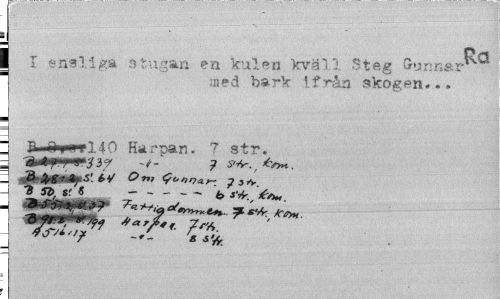 I ensliga stugan en kulen kväll Steg Gunnar Ra
med bark ifrån skogen...
B 8, s. 140 Harpan. 7 str.
B 27, s. 339 -"- 7 str., kom.
B 28:2, s. 64 Om Gunnar. 7 str.
B 50, s. 8 - - - - - 6 str., kom.
s. 37 Fattigdommen 7 str., kom.
s. 199 Harpan. 7 str.
A 516:17 -"- 8 str.